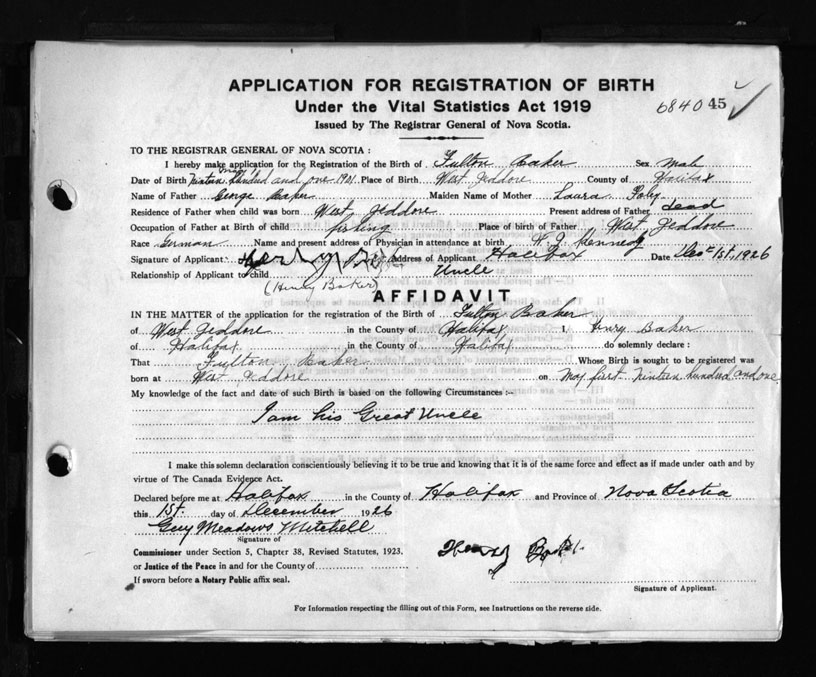 APPLICATION FOR REGISTRATION OF BIRTH
Under the Vital Statistics Act 1919
6840 45
Issued by The Registrar General of Nova Scotia.
TO THE REGISTRAR GENERAL OF NOVA SCOTIA :
I hereby make application for the Registration of the Birth of Fulton Baker Sex Male
Date of Birth May Nineteen Hundred and one 1901 Place of Birth West Jeddore County of Halifax
Name of Father George Baker Maiden Name of Mother Laura Foley
Residence of Father when child was born West Jeddore Present address of Father dead
Occupation of Father at Birth of child fishing Place of birth of Father West Jeddore
Race German Name and present address of Physician in attendance at birth W. J. Kennedy
Signature of Applicant Address of Applicant Halifax Date Dec 1st, 1926
Relationship of Applicant to child Uncle
(Henry Baker)
AFFIDAVIT
IN THE MATTER of the application for the registration of the Birth of Fulton Baker
of West Jeddore in the County of Halifax I, Henry Baker
of Halifax in the County of Halifax do solemnly declare :
That Fulton Baker Whose Birth is sought to be registered was
born at West Jeddore on May first Nineteen hundred and one
My knowledge of the fact and date of such Birth is based on the following Circumstances :–
I am his Great Uncle
I make this solemn declaration conscientiously believing it to be true and knowing that it is of the same force and effect as if made under oath and by
virtue of The Canada Evidence Act.
Declared before me at Halifax in the County of Halifax and Province of Nova Scotia
this 1st. day of December 1926
Guy Meadows Mitchell
Signature of
Commissioner under Section 5, Chapter 38, Revised Statutes, 1923.
Henry Baker
or Justice of the Peace in and for the County of
If sworn before a Notary Public affix seal.
Signature of Applicant.
For Information respecting the filling out of this Form, see Instructions on the reverse side.